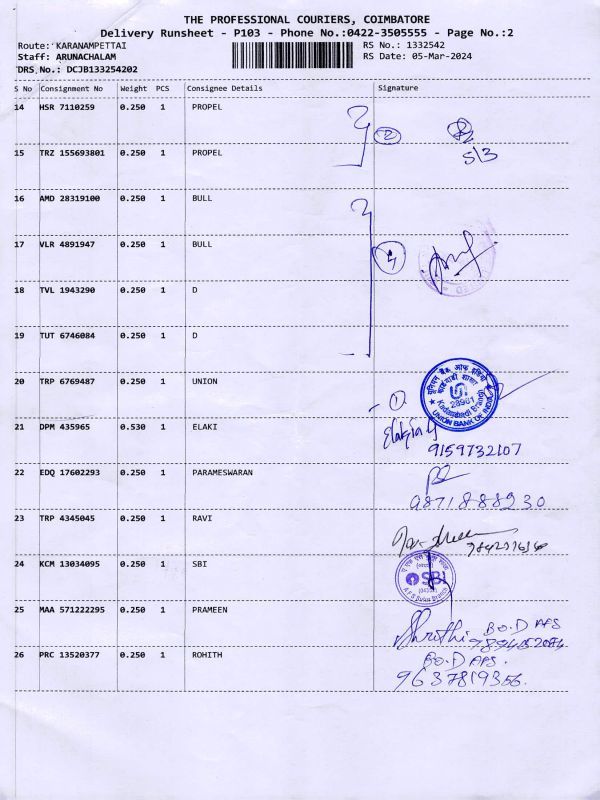 THE PROFESSIONAL COURIERS, COIMBATORE
Delivery Runsheet - P103 - Phone No.:0422-3505555 - Page No.:2
Route: KARANAMPETTAI RS No.: 1332542
Staff: ARUNACHALAM RS Date: 05-Mar-2024
DRS No.: DCJB133254202
S No Consignment No Weight PCS Consignee Details Signature
14 HSR 7110259 0.250 1 PROPEL 2
15 TRZ 155693801 0.250 1 PROPEL 5/3
16 AMD 28319100 0.250 1 BULL
17 VLR 4891947 0.250 1 BULL 4
18 TVL 1943290 0.250 1 D
19 TUT 6746084 0.250 1 D
20 TRP 6769487 0.250 1 UNION 1
28901
Kadambadi Branch
UNION BANK OF INDIA
21 DPM 435965 0.530 1 ELAKI
9159732107
22 EDQ 17602293 0.250 1 PARAMESWARAN
9871888230
23 TRP 4345045 0.250 1 RAVI
24 KCM 13034095 0.250 1 SBI
SBI
25 MAA 571222295 0.250 1 PRAMEEN
Shruthi BO.D AFS
26 PRC 13520377 0.250 1 ROHITH BO.D AFS.
9637819356.